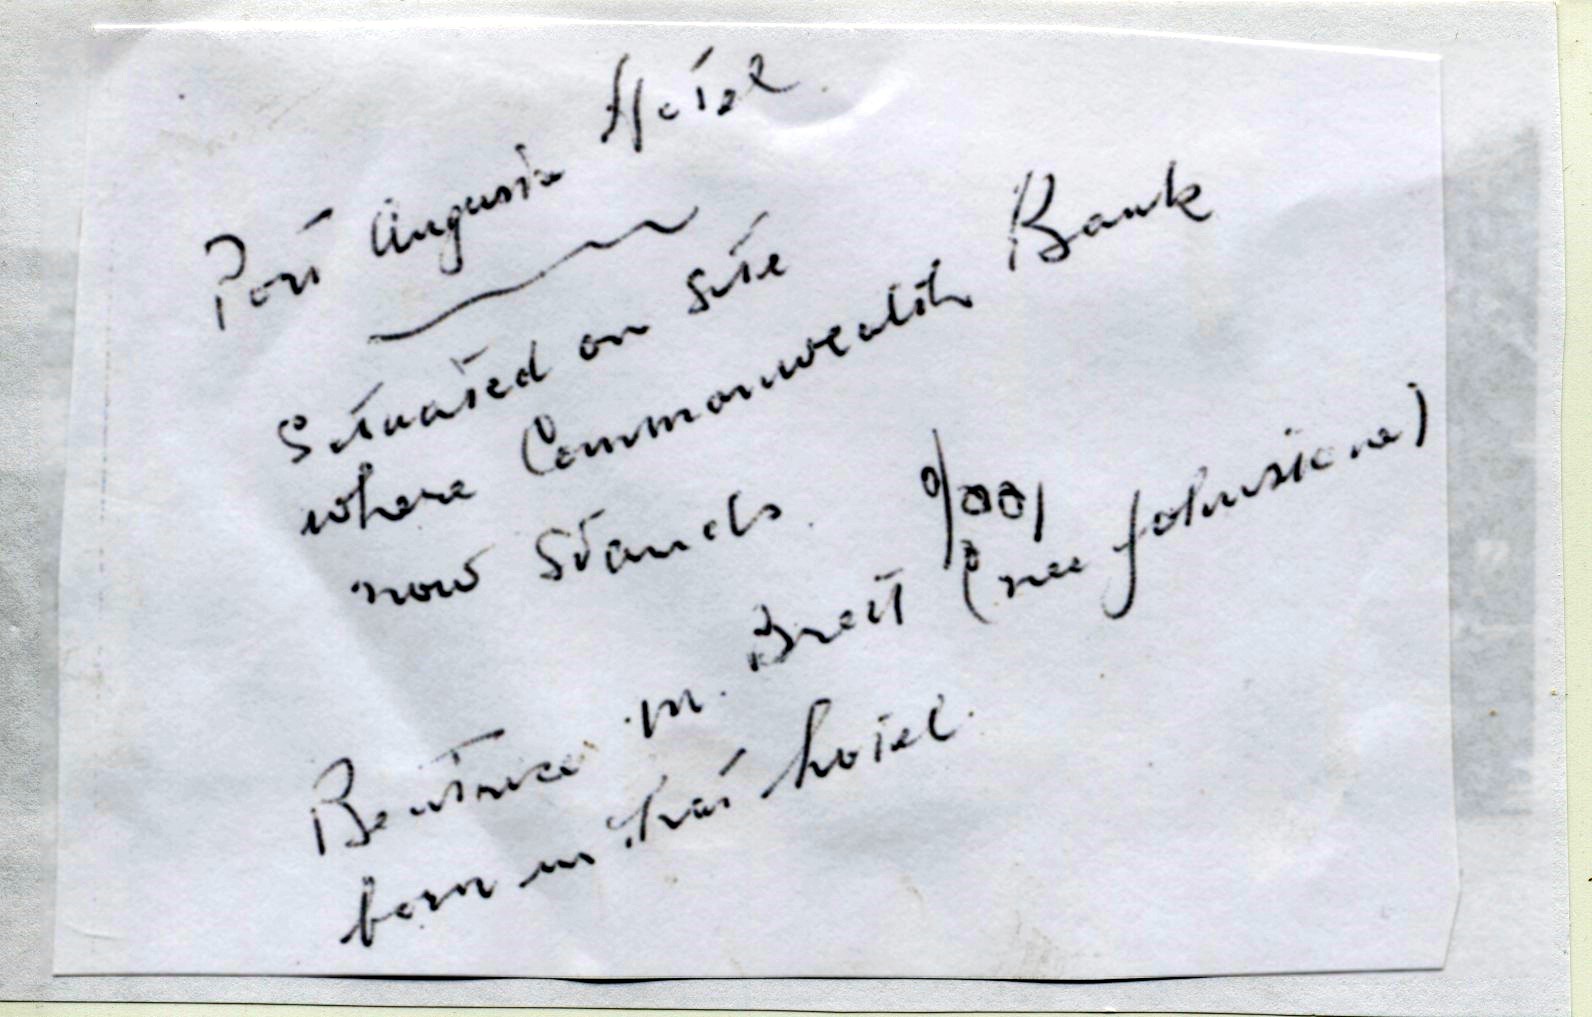 Port Augusta Hotel.
Situated on site
where Commonwealth Bank
now stands.
Beatrice M. Brett (nee Johnstone)
born in that hotel.